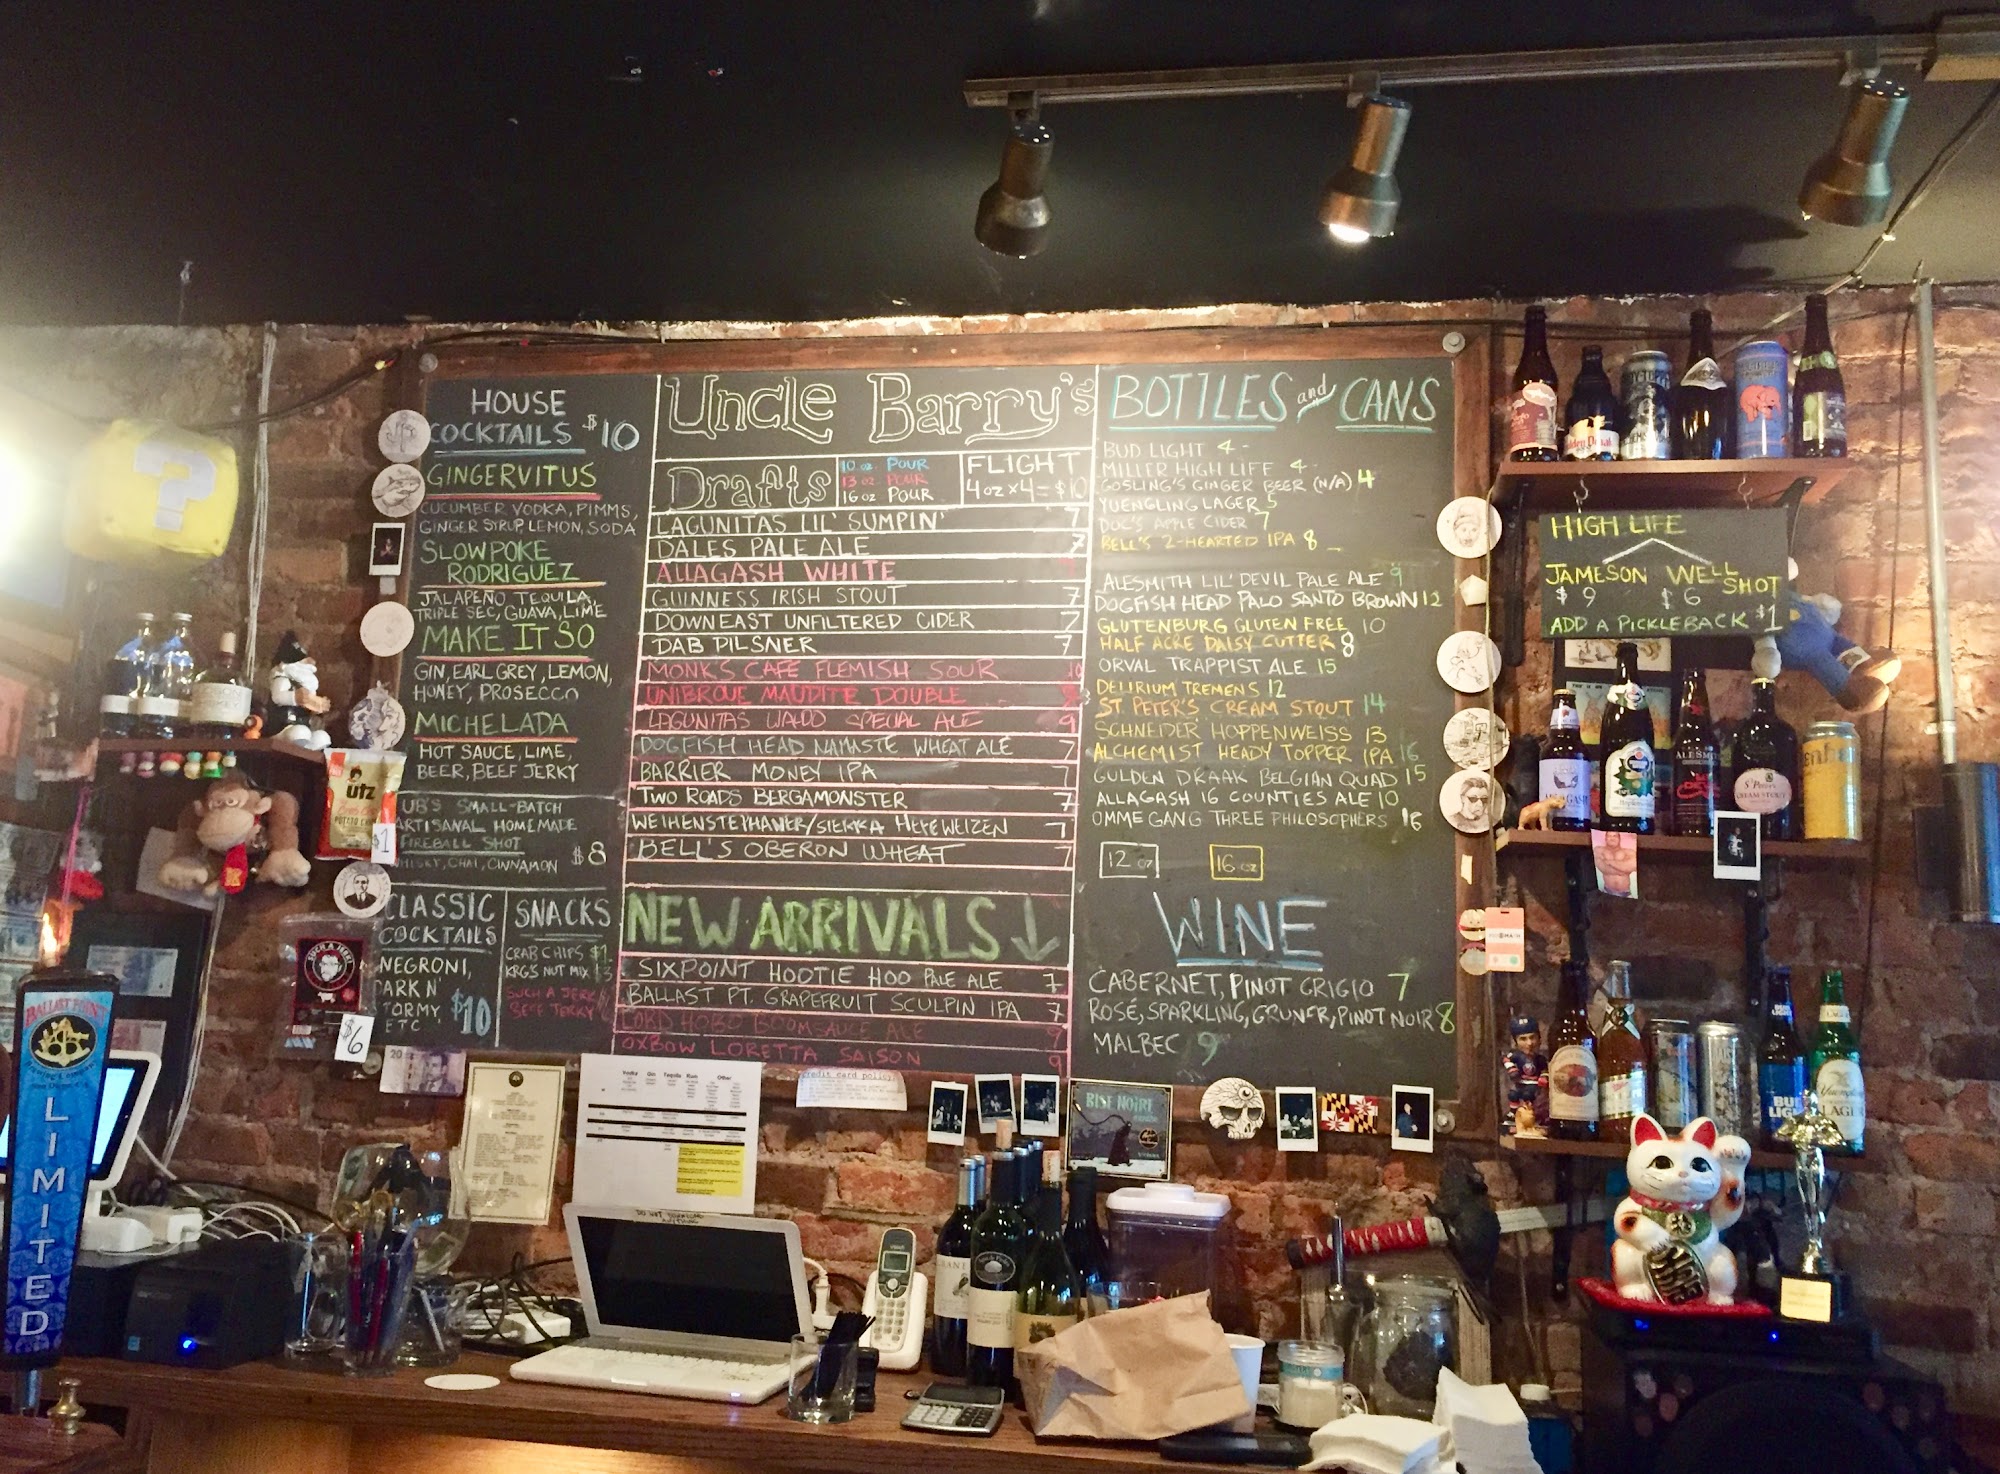 HOUSE
COCKTAILS $10
GINGERVITUS
CUCUMBER VODKA, PIMMS,
GINGER SYRUP, LEMON, SODA
SLOWPOKE
RODRIGUEZ
JALAPEÑO TEQUILA,
TRIPLE SEC, GUAVA, LIME
MAKE IT SO
GIN, EARL GREY, LEMON,
HONEY, PROSECCO
MICHELADA
HOT SAUCE, LIME,
BEER, BEEF JERKY
UB'S SMALL-BATCH
ARTISANAL HOMEMADE
FIREBALL SHOT
WHISKY, CHAI, CINNAMON $8
CLASSIC
COCKTAILS
NEGRONI,
DARK N'
STORMY,
ETC $10
SNACKS
CRAB CHIPS $1
KRG'S NUT MIX $3
SUCH A JERK
BEEF JERKY
UNCLE BARRY'S
DRAFTS
10 OZ POUR
13 OZ POUR
16 OZ POUR
FLIGHT
4 OZ X 4 = $10
LAGUNITAS LIL' SUMPIN' 7
DALES PALE ALE 7
ALLAGASH WHITE
GUINNESS IRISH STOUT 7
DOWNEAST UNFILTERED CIDER 7
DAB PILSNER 7
MONK'S CAFE FLEMISH SOUR 10
UNIBROUE MAUDITE DOUBLE
LAGUNITAS WALDO SPECIAL ALE 9
DOGFISH HEAD NAMASTE WHEAT ALE 7
BARRIER MONEY IPA 7
TWO ROADS BERGAMONSTER 7
WEIHENSTEPHANER/SIERRA HEFEWEIZEN 7
BELL'S OBERON WHEAT 7
NEW ARRIVALS ↓
SIXPOINT HOOTIE HOO PALE ALE 7
BALLAST PT. GRAPEFRUIT SCULPIN IPA 7
CORD HOBO BOOMSAUCE ALE 9
OXBOW LORETTA SAISON 9
BOTTLES and CANS
BUD LIGHT 4
MILLER HIGH LIFE 4
GOSLING'S GINGER BEER (N/A) 4
YUENGLING LAGER 5
DOC'S APPLE CIDER 7
BELL'S 2-HEARTED IPA 8
ALESMITH LIL' DEVIL PALE ALE 9
DOGFISH HEAD PALO SANTO BROWN 12
GLUTENBURG GLUTEN FREE 10
HALF ACRE DAISY CUTTER 8
ORVAL TRAPPIST ALE 15
DELIRIUM TREMENS 12
ST. PETER'S CREAM STOUT 14
SCHNEIDER HOPPENWEISS 13
ALCHEMIST HEADY TOPPER IPA 16
GULDEN DRAAK BELGIAN QUAD 15
ALLAGASH 16 COUNTIES ALE 10
OMMEGANG THREE PHILOSOPHERS 16
12 OZ
16 OZ
WINE
CABERNET, PINOT GRIGIO 7
ROSÉ, SPARKLING, GRUNER, PINOT NOIR 8
MALBEC 9
HIGH LIFE
JAMESON WELL SHOT
$9 $6
ADD A PICKLEBACK $1
utz
$1
SUCH A JERK
$6
BALLAST POINT
LIMITED
credit card policy
Vodka Gin Tequila Rum Other
BISE NOIRE
ALESMITH
St Peter's
CREAM STOUT
BUD
LIGHT
LAGER
20
?